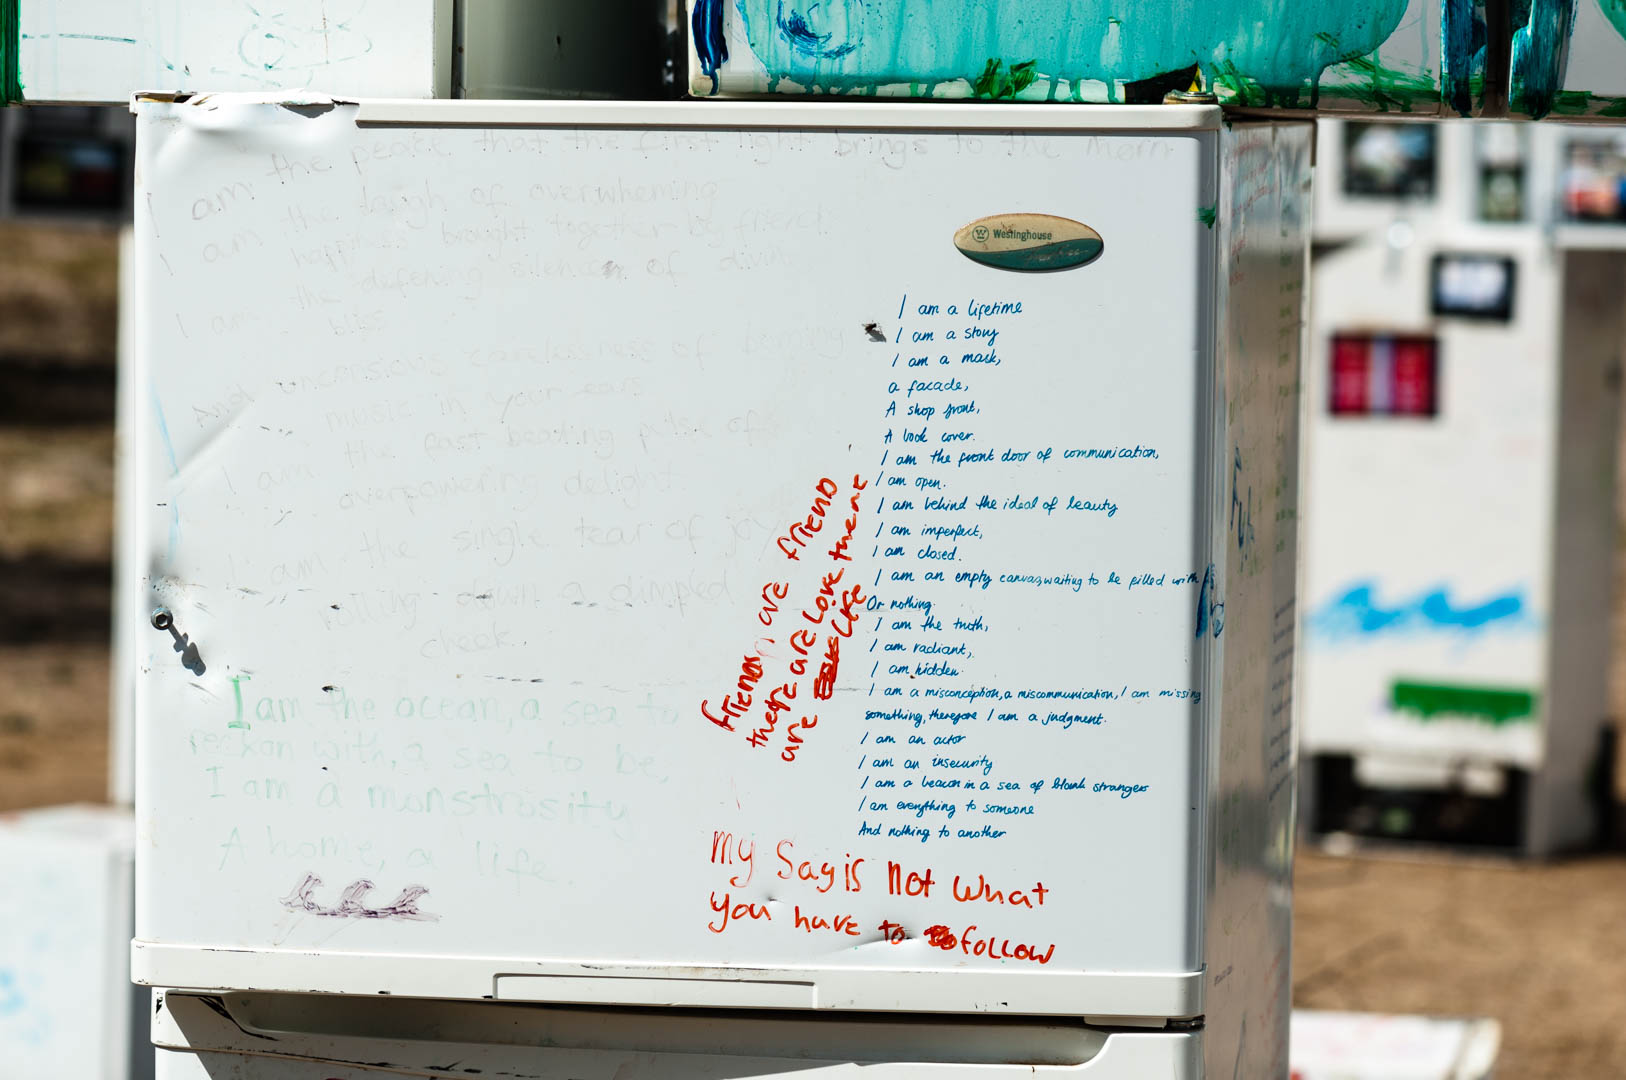 I am the peace that the first light brings to the morn
I am the laugh of overwheming
happiness brought together be friends
I am the defening silence of divine
bliss
And unconsious carelessness of
music in your ears
I am the fast beating pulse of
overpowering delight
I am the single tear of joy
rolling down a dimpled
cheek.
I am the ocean, a sea to
reckon with, a sea to be,
I am a monstrosity
A home, a life.
Westinghouse
I am a lifetime
I am a story
I am a mask,
a facade,
A shop front,
A book cover.
I am the front door of communication,
I am open.
I am behind the ideal of beauty
I am imperfect,
I am closed.
I am an empty canvas, waiting to be filled with
Or nothing.
I am the truth,
I am radiant,
I am hidden.
I am a misconception, a miscommunication, I am missing
something, therefore I am a judgment.
I am an actor
I am an insecurity
I am a beacon in a sea of blank strangers
I am everything to someone
And nothing to another
friends are friend
there are Love there
are Life
My Say is not what
you have to follow